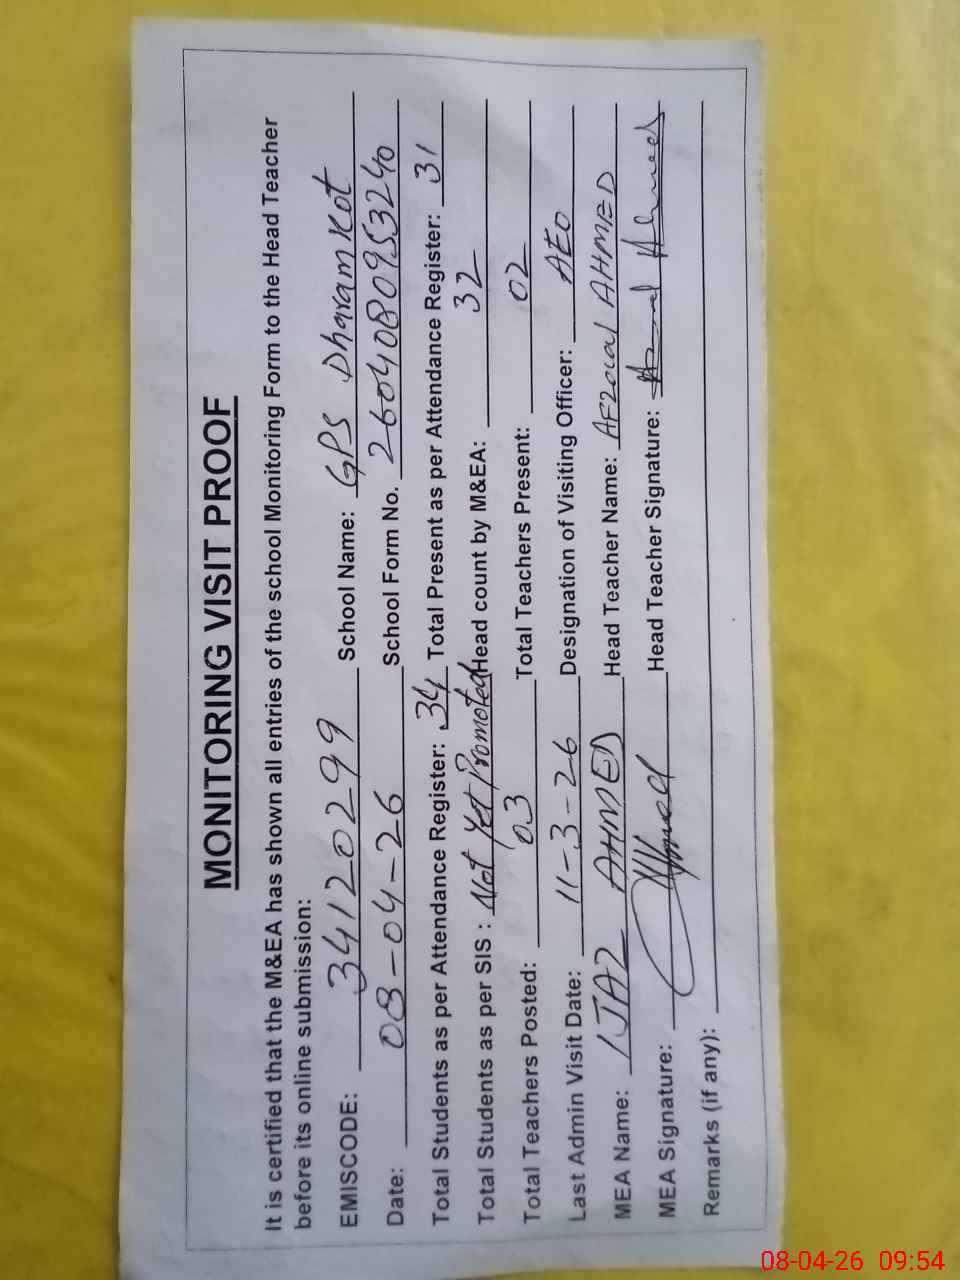 MONITORING VISIT PROOF
It is certified that the M&EA has shown all entries of the school Monitoring Form to the Head Teacher
before its online submission:
EMISCODE: 34120299 School Name: GPS Dharamkot
Date: 08-04-26 School Form No. 260408095324
Total Students as per Attendance Register: 34 Total Present as per Attendance Register: 31
Total Students as per SIS : Not Yet Promoted Head count by M&EA: 32
Total Teachers Posted: 03 Total Teachers Present: 02
Last Admin Visit Date: 11-3-26 Designation of Visiting Officer: AEO
MEA Name: IJAZ AHMED Head Teacher Name: AHMED
MEA Signature: Ahmed Head Teacher Signature: Ahmed
Remarks (if any):
08-04-26 09:54